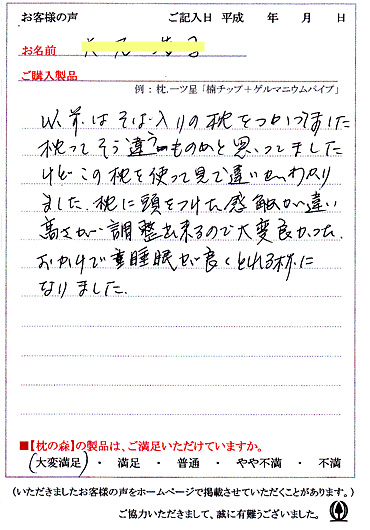 お客様の声　ご記入日 平成　年　月　日
お名前
ご購入製品
例：枕.一ツ星「楠チップ＋ゲルマニウムパイプ」
以前はそば入りの枕をつかってました
枕ってそう違うものかと思ってました
けどこの枕を使って見て違いがわかり
ました.枕に頭をつけた感触が違い
高さが調整出来るので大変良かった.
おかげで睡眠が良くとれる様に
なりました.
■【枕の森】の製品は、ご満足いただけていますか。
大変満足・満足・普通・やや不満・不満
（いただきましたお客様の声をホームページで掲載させていただくことがあります。）
ご協力いただきまして、誠に有難うございました。